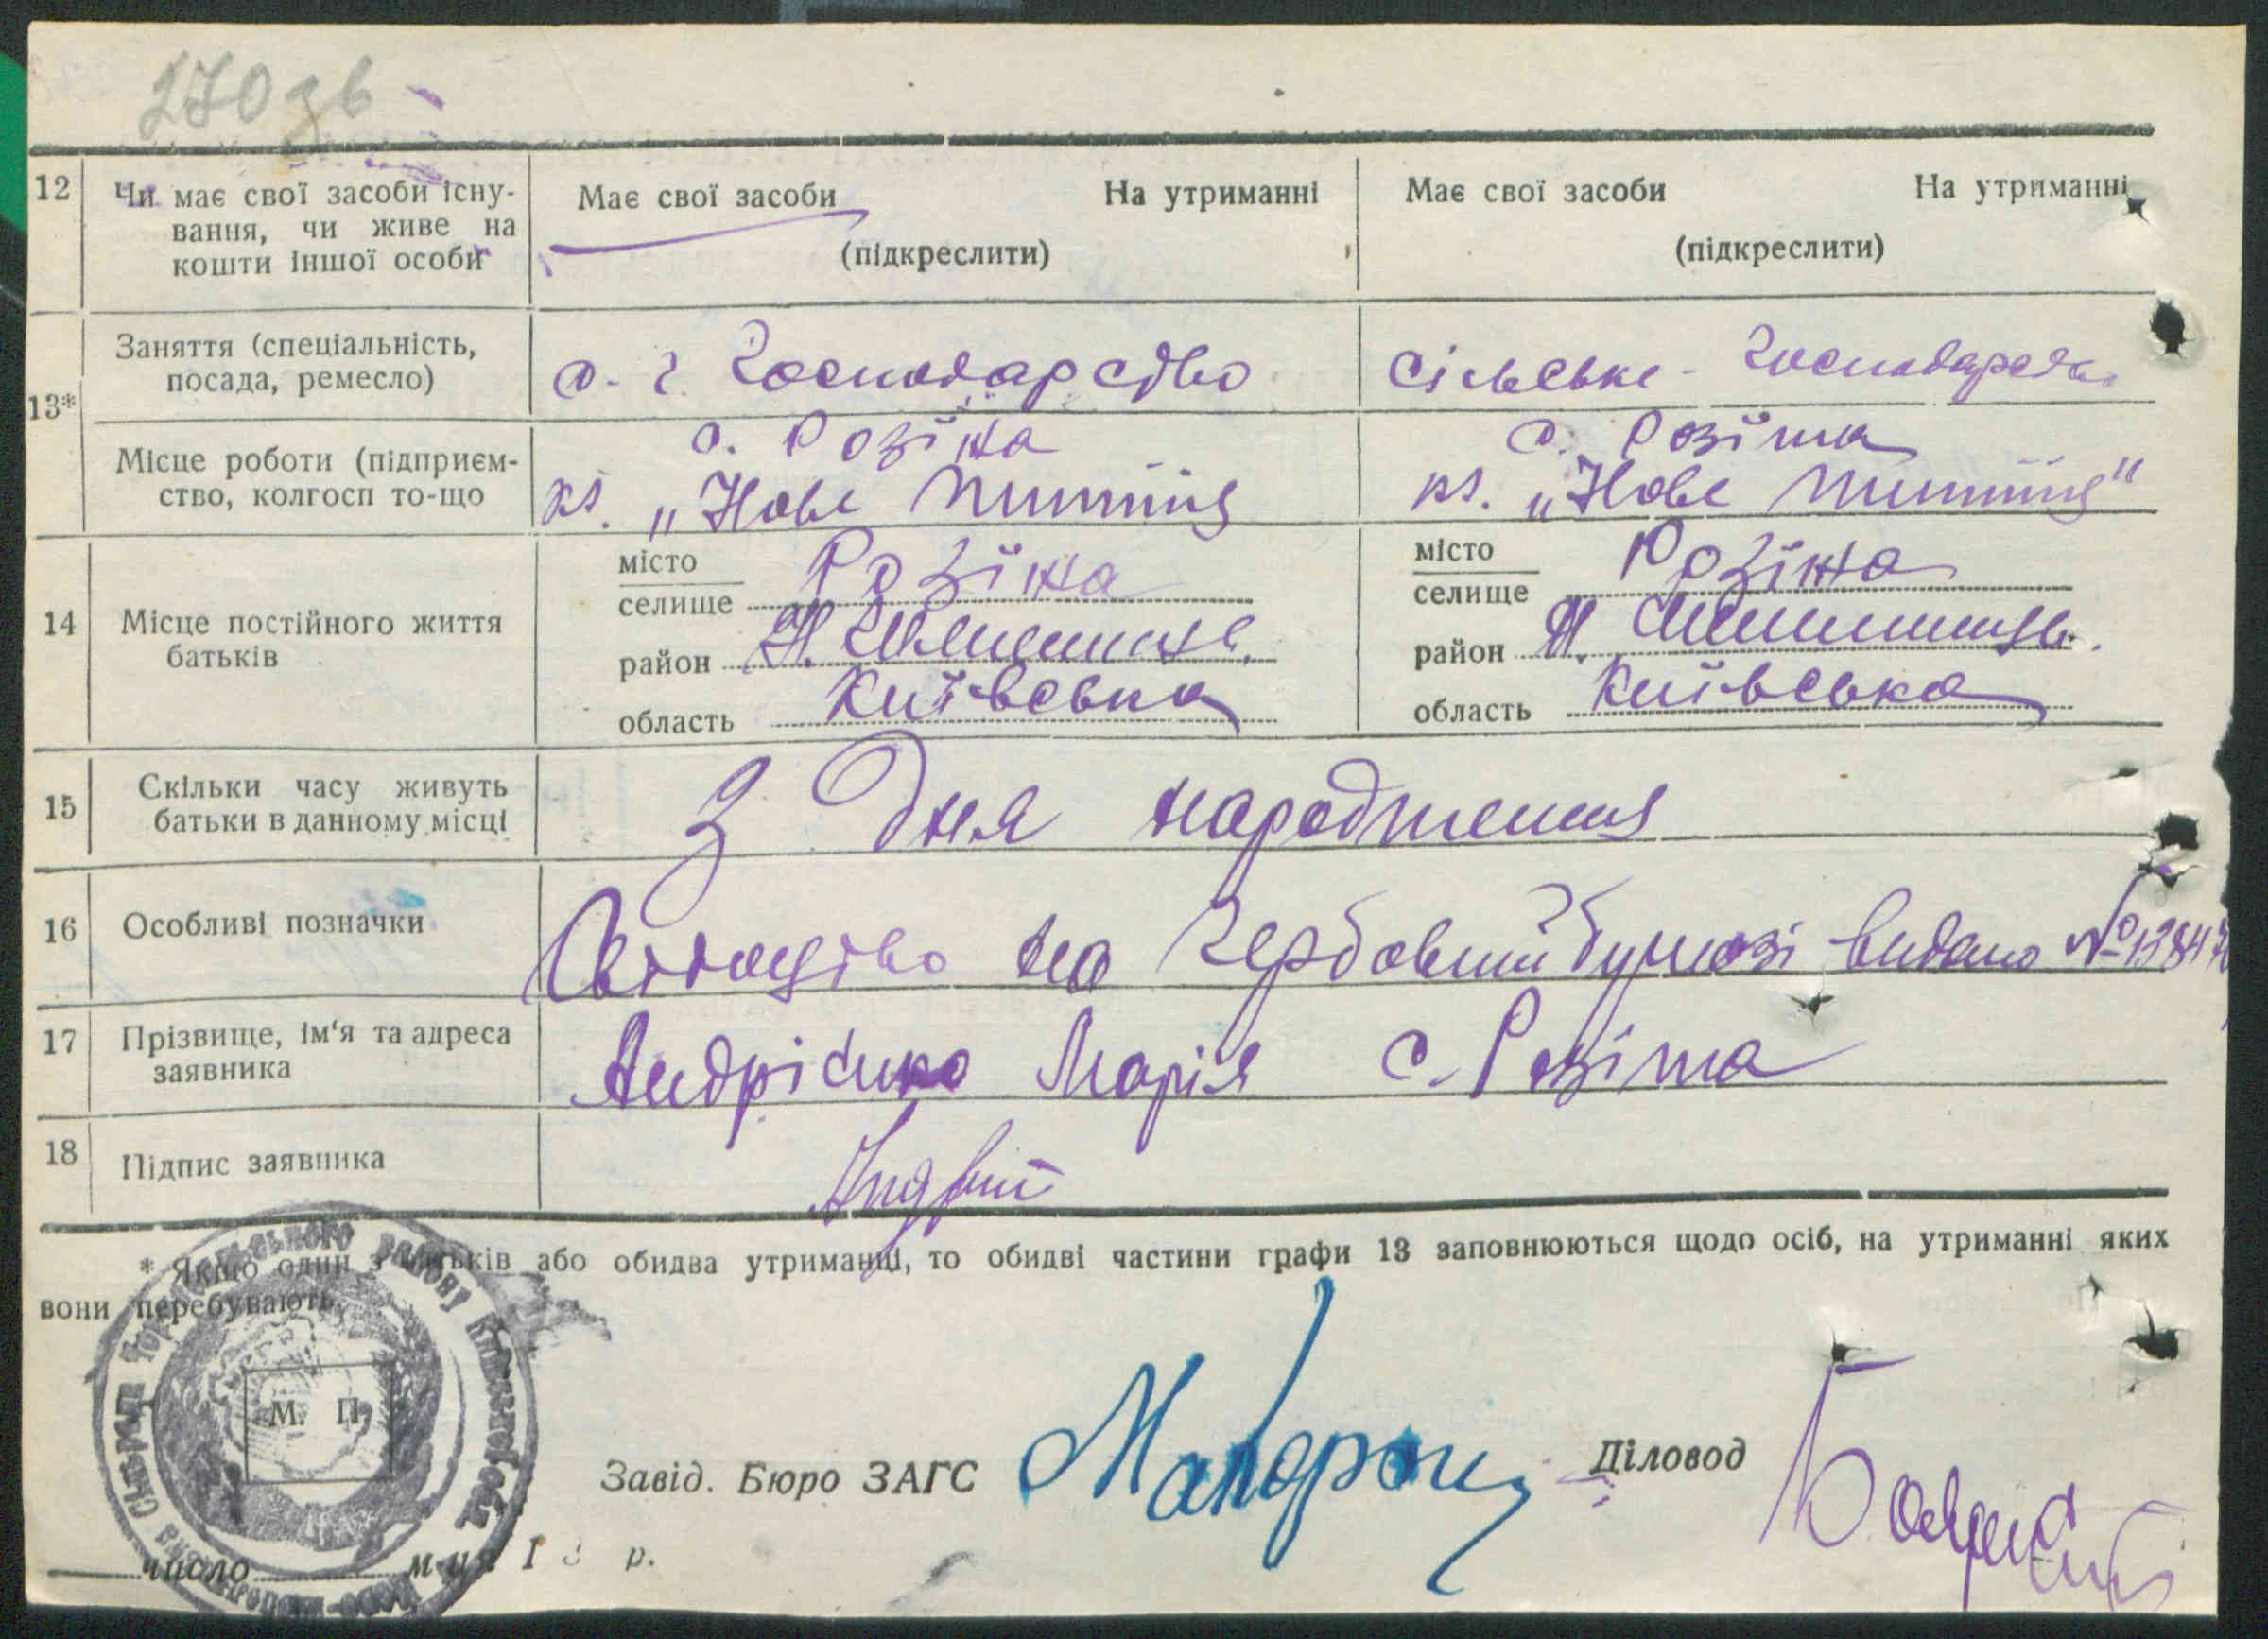 270 зв
12 Чи має свої засоби існу- Має свої засоби На утриманні Має свої засоби На утриманні
вання, чи живе на
кошти іншої особи (підкреслити) (підкреслити)
13* Заняття (спеціальність, посада, ремесло) с. г. господарство сільське-господарств
с. Розіжа с. Розіжа
Місце роботи (підприєм-
ство, колгосп то-що „Нове життя „Нове життя"
14 Місце постійного життя
батьків
місто Розіжа місто Розіжа
селище селище
район район
область Київська область Київська
15 Скільки часу живуть
батьки в данному місці З дня народження
16 Особливі позначки Свідоцтво на гербовий бумазі видано №
17 Прізвище, ім'я та адреса
заявника Андрієнко Марія с. Розіжа
18 Підпис заявника
* Якщо один з батьків або обидва утриманці, то обидві частини графи 13 заповнюються щодо осіб, на утриманні яких
вони перебувають.
М. П.
Завід. Бюро ЗАГС Діловод
число м-ця 1 р.